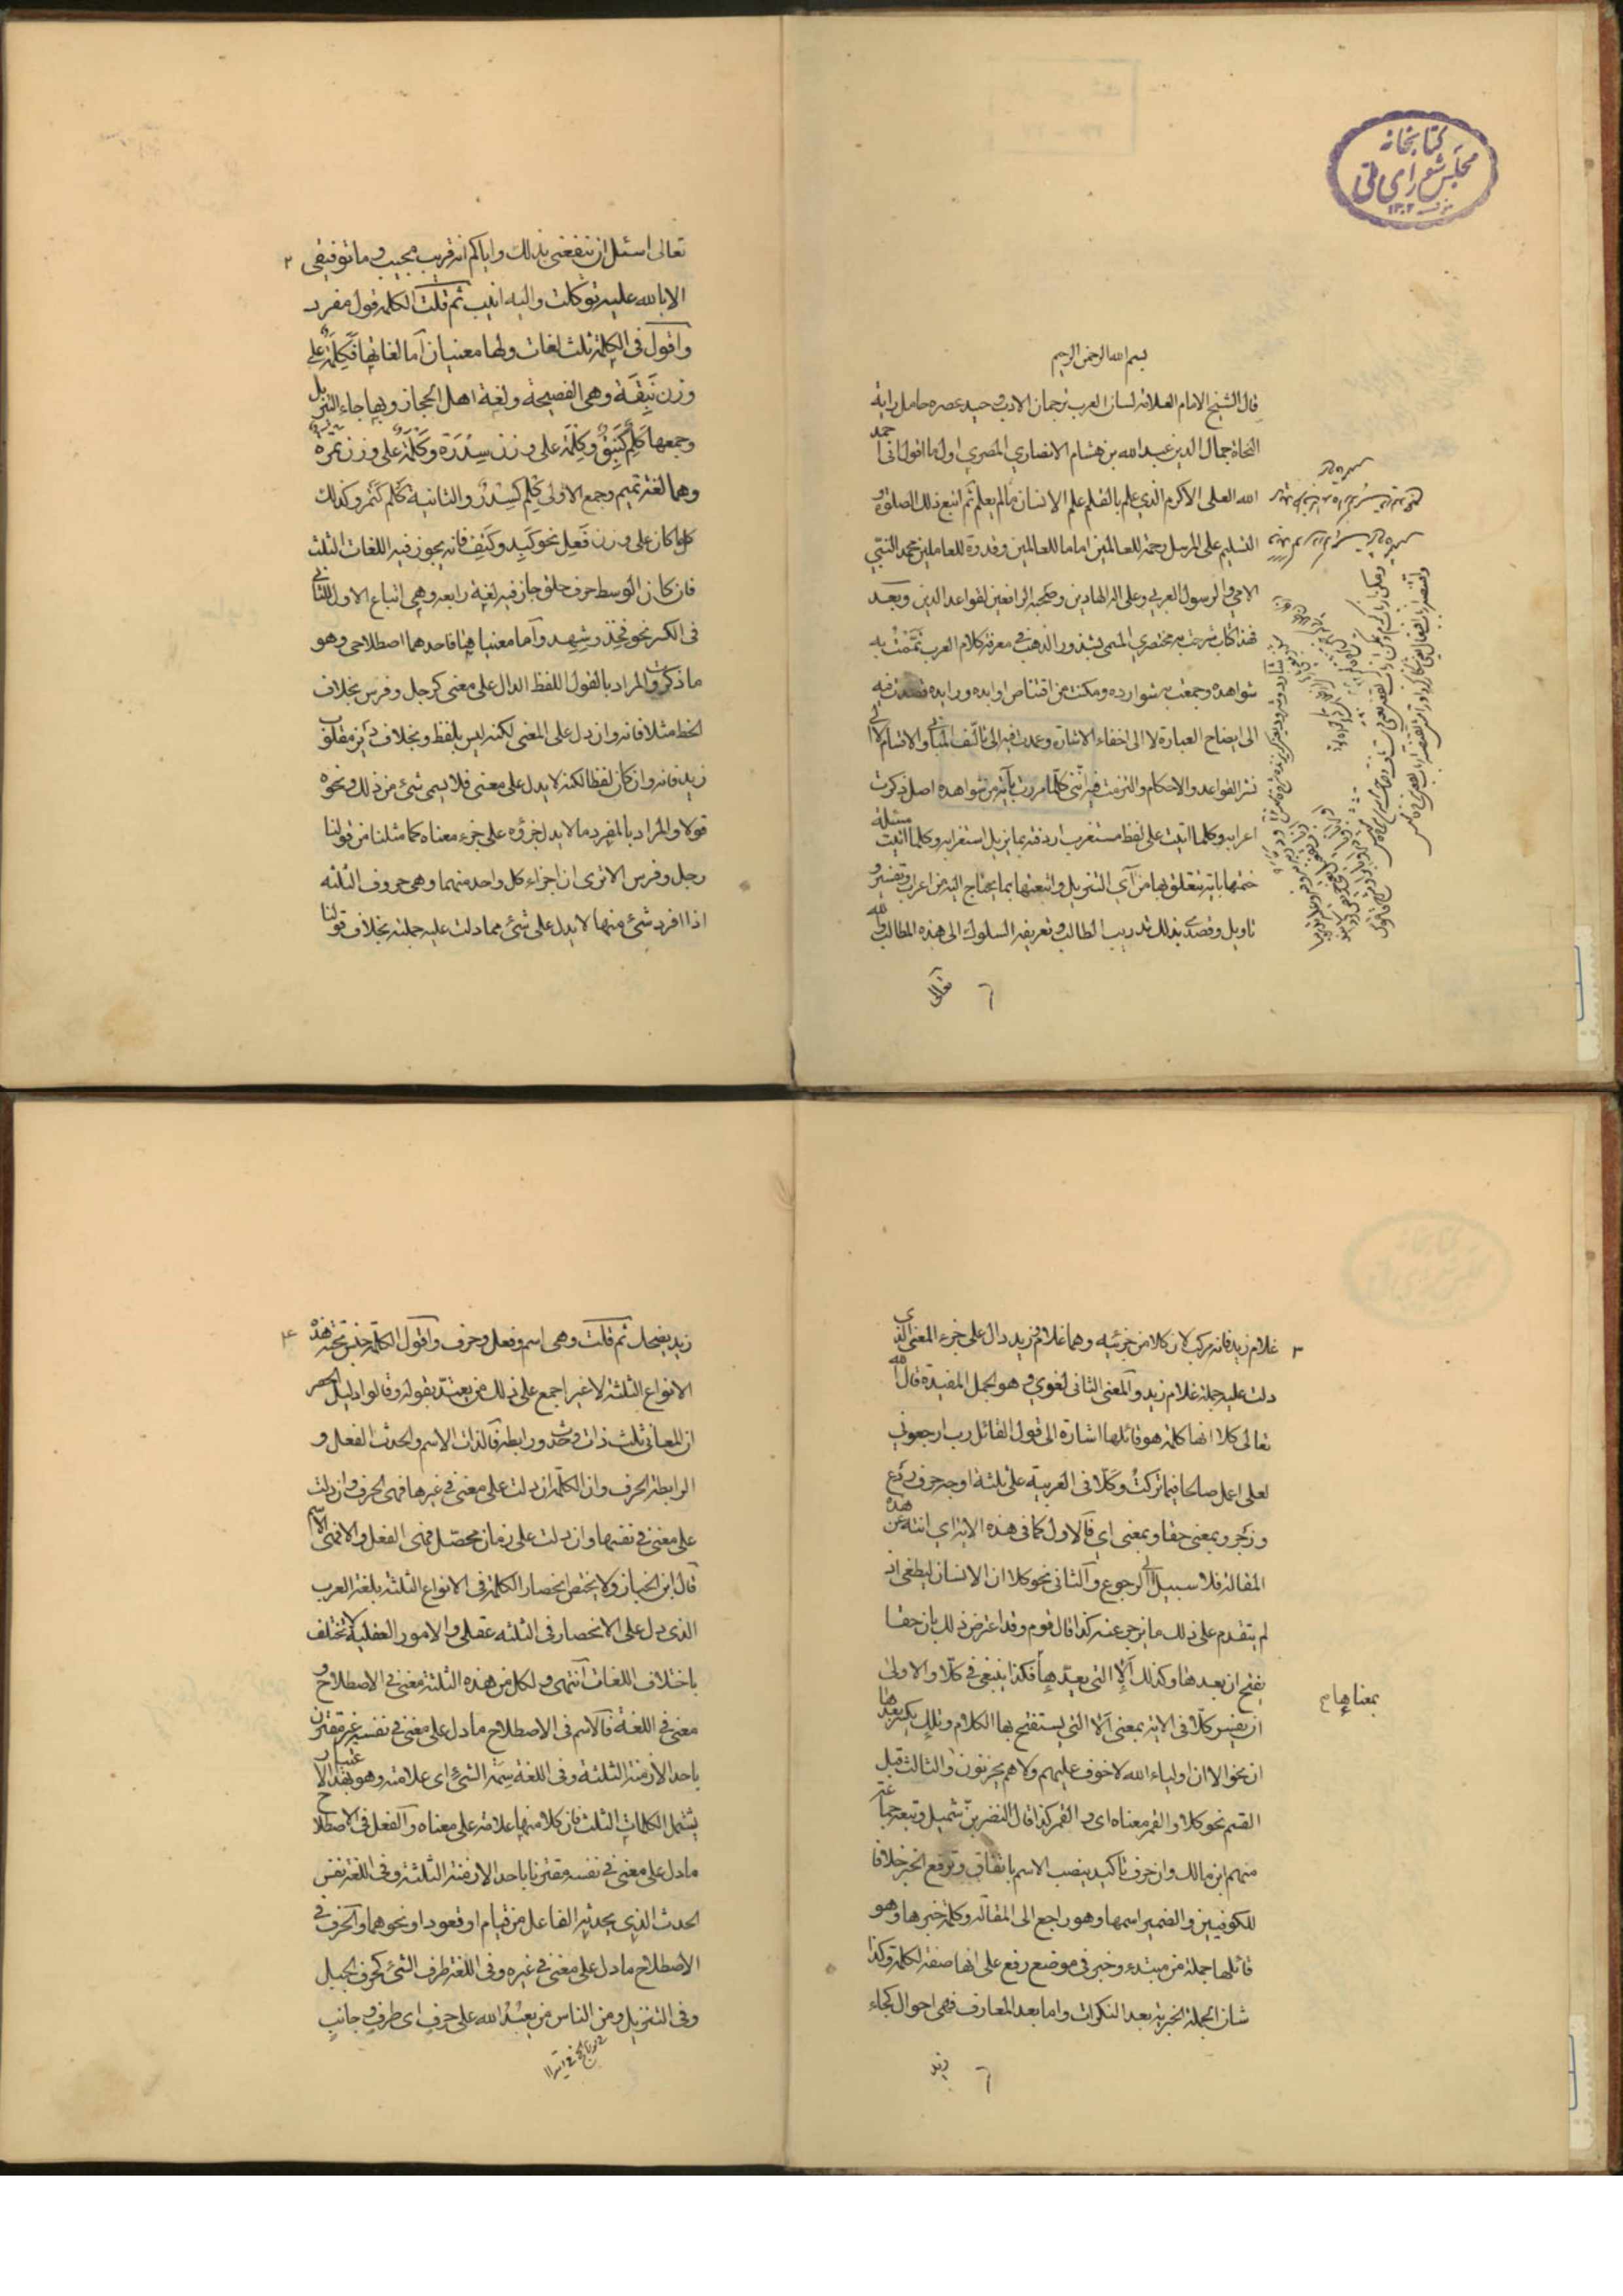 كتابخانه
مجلس شورای ملی
۱۳۰۲
بسم الله الرحمن الرحيم
قال الشيخ الامام العلامة لسان العرب ترجمان الادب وحيد عصره حامل راية
النحاة جمال الدين عبد الله بن هشام الانصاري المصري اول ما اقول اني احمد
الله العلى الاكرم الذي علم بالقلم علم الانسان مالم يعلم ثم اتبع ذلك الصلوة و
التسليم على المرسل رحمة للعالمين اماما للعالمين وقدوة للعاملين محمد النبي
الامي والرسول العربي وعلى اله الهادين وصحبه الرافعين لقواعد الدين وبعد
فهذا كتاب شرحت به مختصري المسمى بشذور الذهب في معرفة كلام العرب تممت به
شواهده وجمعت به شوارده ومكنت من اقتناص اوابده ورايده قصدت فيه
الى ايضاح العبارة لا الى اخفاء الاشارة وعمدت فيه الى تاليف المباني والاقسام لا الى
نشر القواعد والاحكام والتزمت فيه انني كلما مررت بآية من شواهده اصل ذكرت
اعرابه وكلما اتيت على لفظ مستغرب اردفته بما يزيل استغرابه وكلما انهيت مسئلة
ختمتها باية تتعلق بها من آي التنزيل واتبعتها بما يحتاج اليه من اعراب وتفسير و
تاويل وقصدي بذلك تدريب الطالب وتعريفه السلوك الى هذه المطالب والله
تعالى
۲
تعالى اسئل ان ينفعني بذلك واياكم انه قريب مجيب وما توفيقى
الا بالله عليه توكلت واليه انيب ثم قلت الكلمة قول مفرد
واقول فى الكلمة ثلث لغات ولها معنيان اما لغاتها فكلمة على
وزن نبقة وهى الفصيحة ولغة اهل الحجاز وبها جاء التنزيل
وجمعها كلم كنبق وكلمة على وزن سدرة وكلمة على وزن تمرة
وهما لغتا تميم وجمع الاولى كلم كسدر والثانية كلم كتمر وكذلك
كلما كان على وزن فعل نحو كبد وكتف فانه يجوز فيه اللغات الثلث
فان كان الوسط حرف حلق جاز فيه لغة رابعة وهي اتباع الاول للثاني
فى الكسر نحو فخذ وشهد واما معنياها فاحدهما اصطلاحى وهو
ما ذكرت والمراد بالقول اللفظ الدال على معنى كرجل وفرس بخلاف
الخط مثلا فانه وان دل على المعنى لكنه ليس بلفظ وبخلاف ديز مقلوب
زيد فانه وان كان لفظا لكنه لا يدل على معنى فلا يسمى شئ من ذلك ونحوه
قولا والمراد بالمفرد ما لا يدل جزؤه على جزء معناه كما مثلنا من قولنا
رجل وفرس الا ترى ان اجزاء كل واحد منهما وهى حروف الثلثة
اذا افرد شئ منها لا يدل على شئ مما دلت عليه جملته بخلاف قولنا
۳
غلام زيد فانه مركب لان كلا من جزئيه وهما غلام وزيد دال على جزء المعنى الذى
دلت عليه جملة غلام زيد والمعنى الثانى لغوي وهو الجمل المفيدة قال الله
تعالى كلا انها كلمة هو قائلها اشارة الى قول القائل رب ارجعون
لعلى اعمل صالحا فيما تركت وكلا فى العربية على ثلثة اوجه حرف ردع
وزجر وبمعنى حقا وبمعنى اي فالاول كما فى هذه الاية اي انته عن هذه
المقالة فلا سبيل الى الرجوع والثانى نحو كلا ان الانسان ليطغى اذ
لم يتقدم على ذلك ما يزجر عنه كذا قال قوم وقد اعترض ذلك بان حقا
يفتح ان بعدها وكذلك الا التى بمعناها فكذا ينبغى فى كلا والاولى
بمعناها
ان يفسر كلا فى الاية بمعنى الا التى يستفتح بها الكلام وتلك يكسر بعدها
ان نحو الا ان اولياء الله لا خوف عليهم ولا هم يحزنون والثالث قبل
القسم نحو كلا والقمر معناه اى والقمر كذا قال النضر بن شميل وتبعه جماعة
منهم ابن مالك وان حرف تاكيد ينصب الاسم باتفاق وترفع الخبر خلافا
للكوفيين والضمير اسمها وهو راجع الى المقالة وكلمة خبرها وهو
قائلها جملة من مبتدء وخبر فى موضع رفع على انها صفة لكلمة وكذا
شان الجملة الخبرية بعد النكرات واما بعد المعارف فهى احوال كجاء
زيد
۴
زيد يضحك ثم قلت وهى اسم وفعل وحرف واقول الكلمة جنس تحته هذه
الانواع الثلثة لا غير اجمع على ذلك من يعتد بقوله وقالوا دليل الحصر
ان المعانى ثلث ذات وحدث ورابطة فالذات الاسم والحدث الفعل و
الرابطة الحرف وان الكلمة ان دلت على معنى فى غيرها فهى الحرف وان دلت
على معنى فى نفسها وان دلت على زمان محصل فهى الفعل والا فهى الاسم
قال ابن الخباز ولا يختص انحصار الكلمة فى الانواع الثلثة بلغة العرب
الذى دل على الانحصار فى الثلثة عقلى والامور العقلية لا تختلف
باختلاف اللغات انتهى ولكل من هذه الثلثة معنى فى الاصطلاح و
معنى فى اللغة فالاسم فى الاصطلاح ما دل على معنى فى نفسه غير مقترن
باحد الازمنة الثلثة وفى اللغة سمة الشئ اى علامته وهو بهذا الاعتبار
يشمل الكلمات الثلث فان كلا منها علامة على معناه والفعل فى الاصطلاح
ما دل على معنى فى نفسه مقترنا باحد الازمنة الثلثة وفى اللغة نفس
الحدث الذى يحدثه الفاعل من قيام او قعود او نحوهما والحرف فى
الاصطلاح ما دل على معنى فى غيره وفى اللغة طرف الشئ كحرف الجبل
وفى التنزيل ومن الناس من يعبد الله على حرف اى طرف وجانب